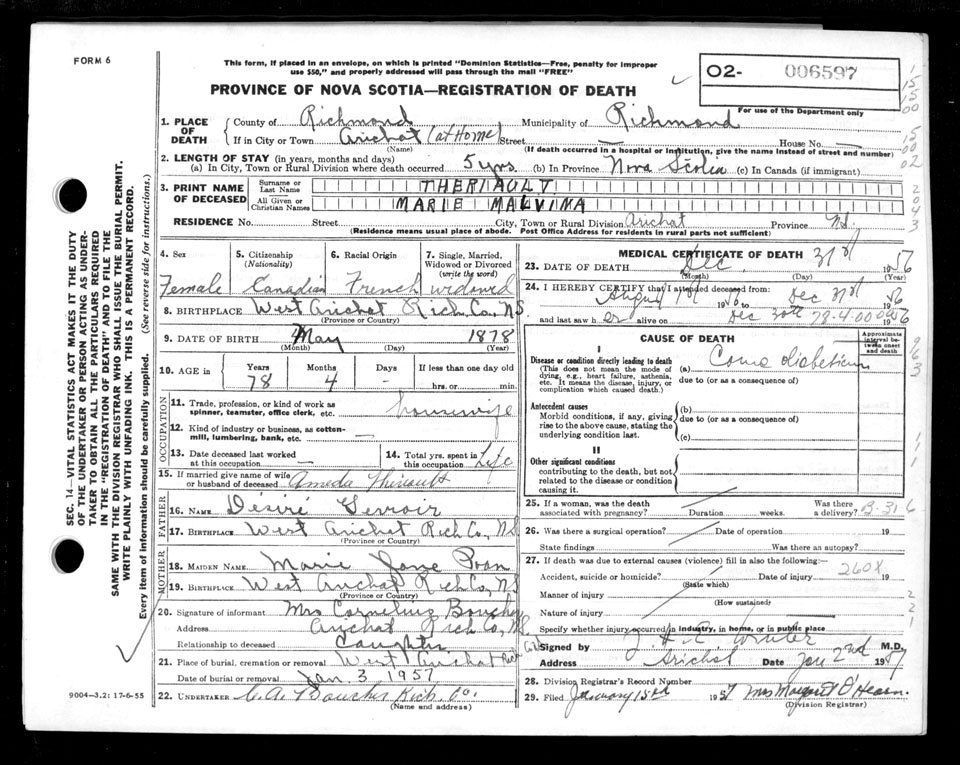 FORM 6
This form, if placed in an envelope, on which is printed "Dominion Statistics—Free, penalty for improper
use $50," and properly addressed will pass through the mail "FREE"
O2- 006597
For use of the Department only
PROVINCE OF NOVA SCOTIA—REGISTRATION OF DEATH
1. PLACE OF DEATH
County of Richmond Municipality of Richmond
If in City or Town Arichat (at Home) Street — House No. —
(Name) (If death occurred in a hospital or institution, give the name instead of street and number)
2. LENGTH OF STAY (in years, months and days)
(a) In City, Town or Rural Division where death occurred 5 yrs (b) In Province Nova Scotia (c) In Canada (if immigrant)
3. PRINT NAME OF DECEASED
Surname or Last Name THERIAULT
All Given or Christian Names MARIE MALVINA
RESIDENCE No. Street City, Town or Rural Division Arichat Province N.S.
(Residence means usual place of abode. Post Office Address for residents in rural parts not sufficient)
4. Sex Female
5. Citizenship (Nationality) Canadian
6. Racial Origin French
7. Single, Married, Widowed or Divorced (write the word) widowed
8. BIRTHPLACE West Arichat Rich. Co., N.S.
(Province or Country)
9. DATE OF BIRTH May 1878
(Month) (Day) (Year)
10. AGE in Years 78 Months 4 Days - If less than one day old hrs. or min.
OCCUPATION
11. Trade, profession, or kind of work as spinner, teamster, office clerk, etc. housewife
12. Kind of industry or business, as cotton-mill, lumbering, bank, etc. —
13. Date deceased last worked at this occupation —
14. Total yrs. spent in this occupation Life
15. If married give name of wife or husband of deceased Ameda Theriault
FATHER
16. Name Désiré
17. Birthplace West Arichat Rich Co., N.S.
(Province or Country)
MOTHER
18. MAIDEN NAME Marie Jane
19. BIRTHPLACE West Arichat Rich Co, N.S
(Province or Country)
20. Signature of informant Mrs Cornelius Boucher
Address Arichat Rich Co, N.S.
Relationship to deceased Daughter
21. Place of burial, cremation or removal West Arichat Rich Co
Date of burial or removal Jan. 3, 1957
22. UNDERTAKER C. A. Boucher Rich. Co.
(Name and address)
9004—3.2: 17-6-55
SEC. 14—VITAL STATISTICS ACT MAKES IT THE DUTY
OF THE UNDERTAKER OR PERSON ACTING AS UNDER-
TAKER TO OBTAIN ALL THE PARTICULARS REQUIRED
IN THE "REGISTRATION OF DEATH" AND TO FILE THE
SAME WITH THE DIVISION REGISTRAR WHO SHALL ISSUE THE BURIAL PERMIT.
WRITE PLAINLY WITH UNFADING INK. THIS IS A PERMANENT RECORD.
Every item of information should be carefully supplied. (See reverse side for instructions.)
MEDICAL CERTIFICATE OF DEATH
23. DATE OF DEATH Dec. 31st 1956
(Month) (Day) (Year)
24. I HEREBY CERTIFY that I attended deceased from:
August 1st 1956 to Dec 31st 1956
and last saw her alive on Dec 30th 1956
78-4-00
CAUSE OF DEATH
Approximate interval between onset and death
I
Disease or condition directly leading to death
(This does not mean the mode of dying, e.g., heart failure, asthenia, etc. It means the disease, injury, or complication which caused death.)
(a) Coma diabeticum
due to (or as a consequence of)
Antecedent causes
Morbid conditions, if any, giving rise to the above cause, stating the underlying condition last.
(b)
due to (or as a consequence of)
(c)
II
Other significant conditions
contributing to the death, but not related to the disease or condition causing it.
25. If a woman, was the death associated with pregnancy? Duration weeks. Was there a delivery?
26. Was there a surgical operation? Date of operation 19
State findings Was there an autopsy?
27. If death was due to external causes (violence) fill in also the following:
Accident, suicide or homicide? Date of injury 19
(State which)
260X
Manner of injury
(How sustained)
Nature of injury
Specify whether injury occurred in industry, in home, or in public place
Signed by Winter M.D.
Address Arichat Date Jan 2nd 1957
28. Division Registrar's Record Number
29. Filed January 15th 1957 Mrs Margaret O'Hearn.
(Division Registrar)